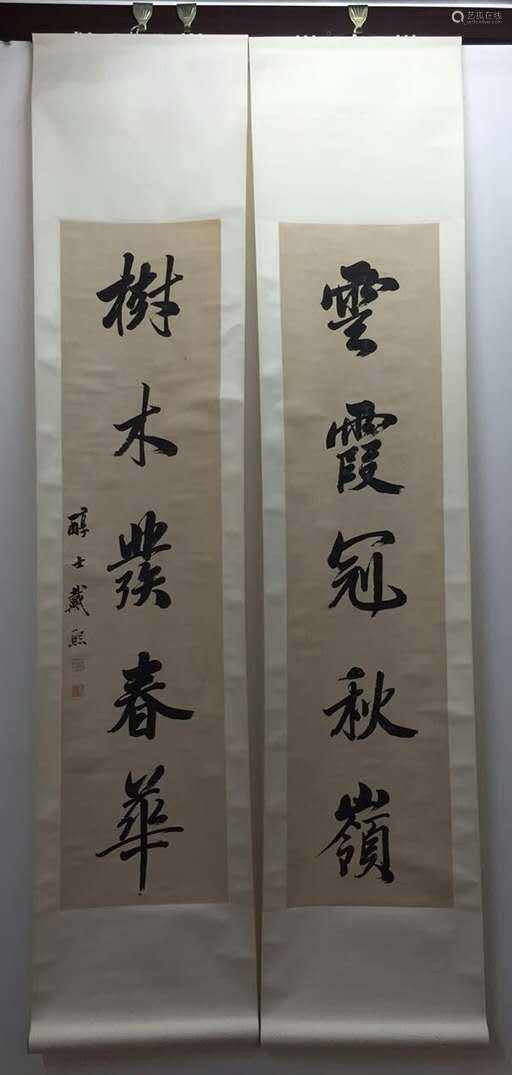 雲霞冠秋嶺
樹木發春華
醇士戴熙
艺狐在线